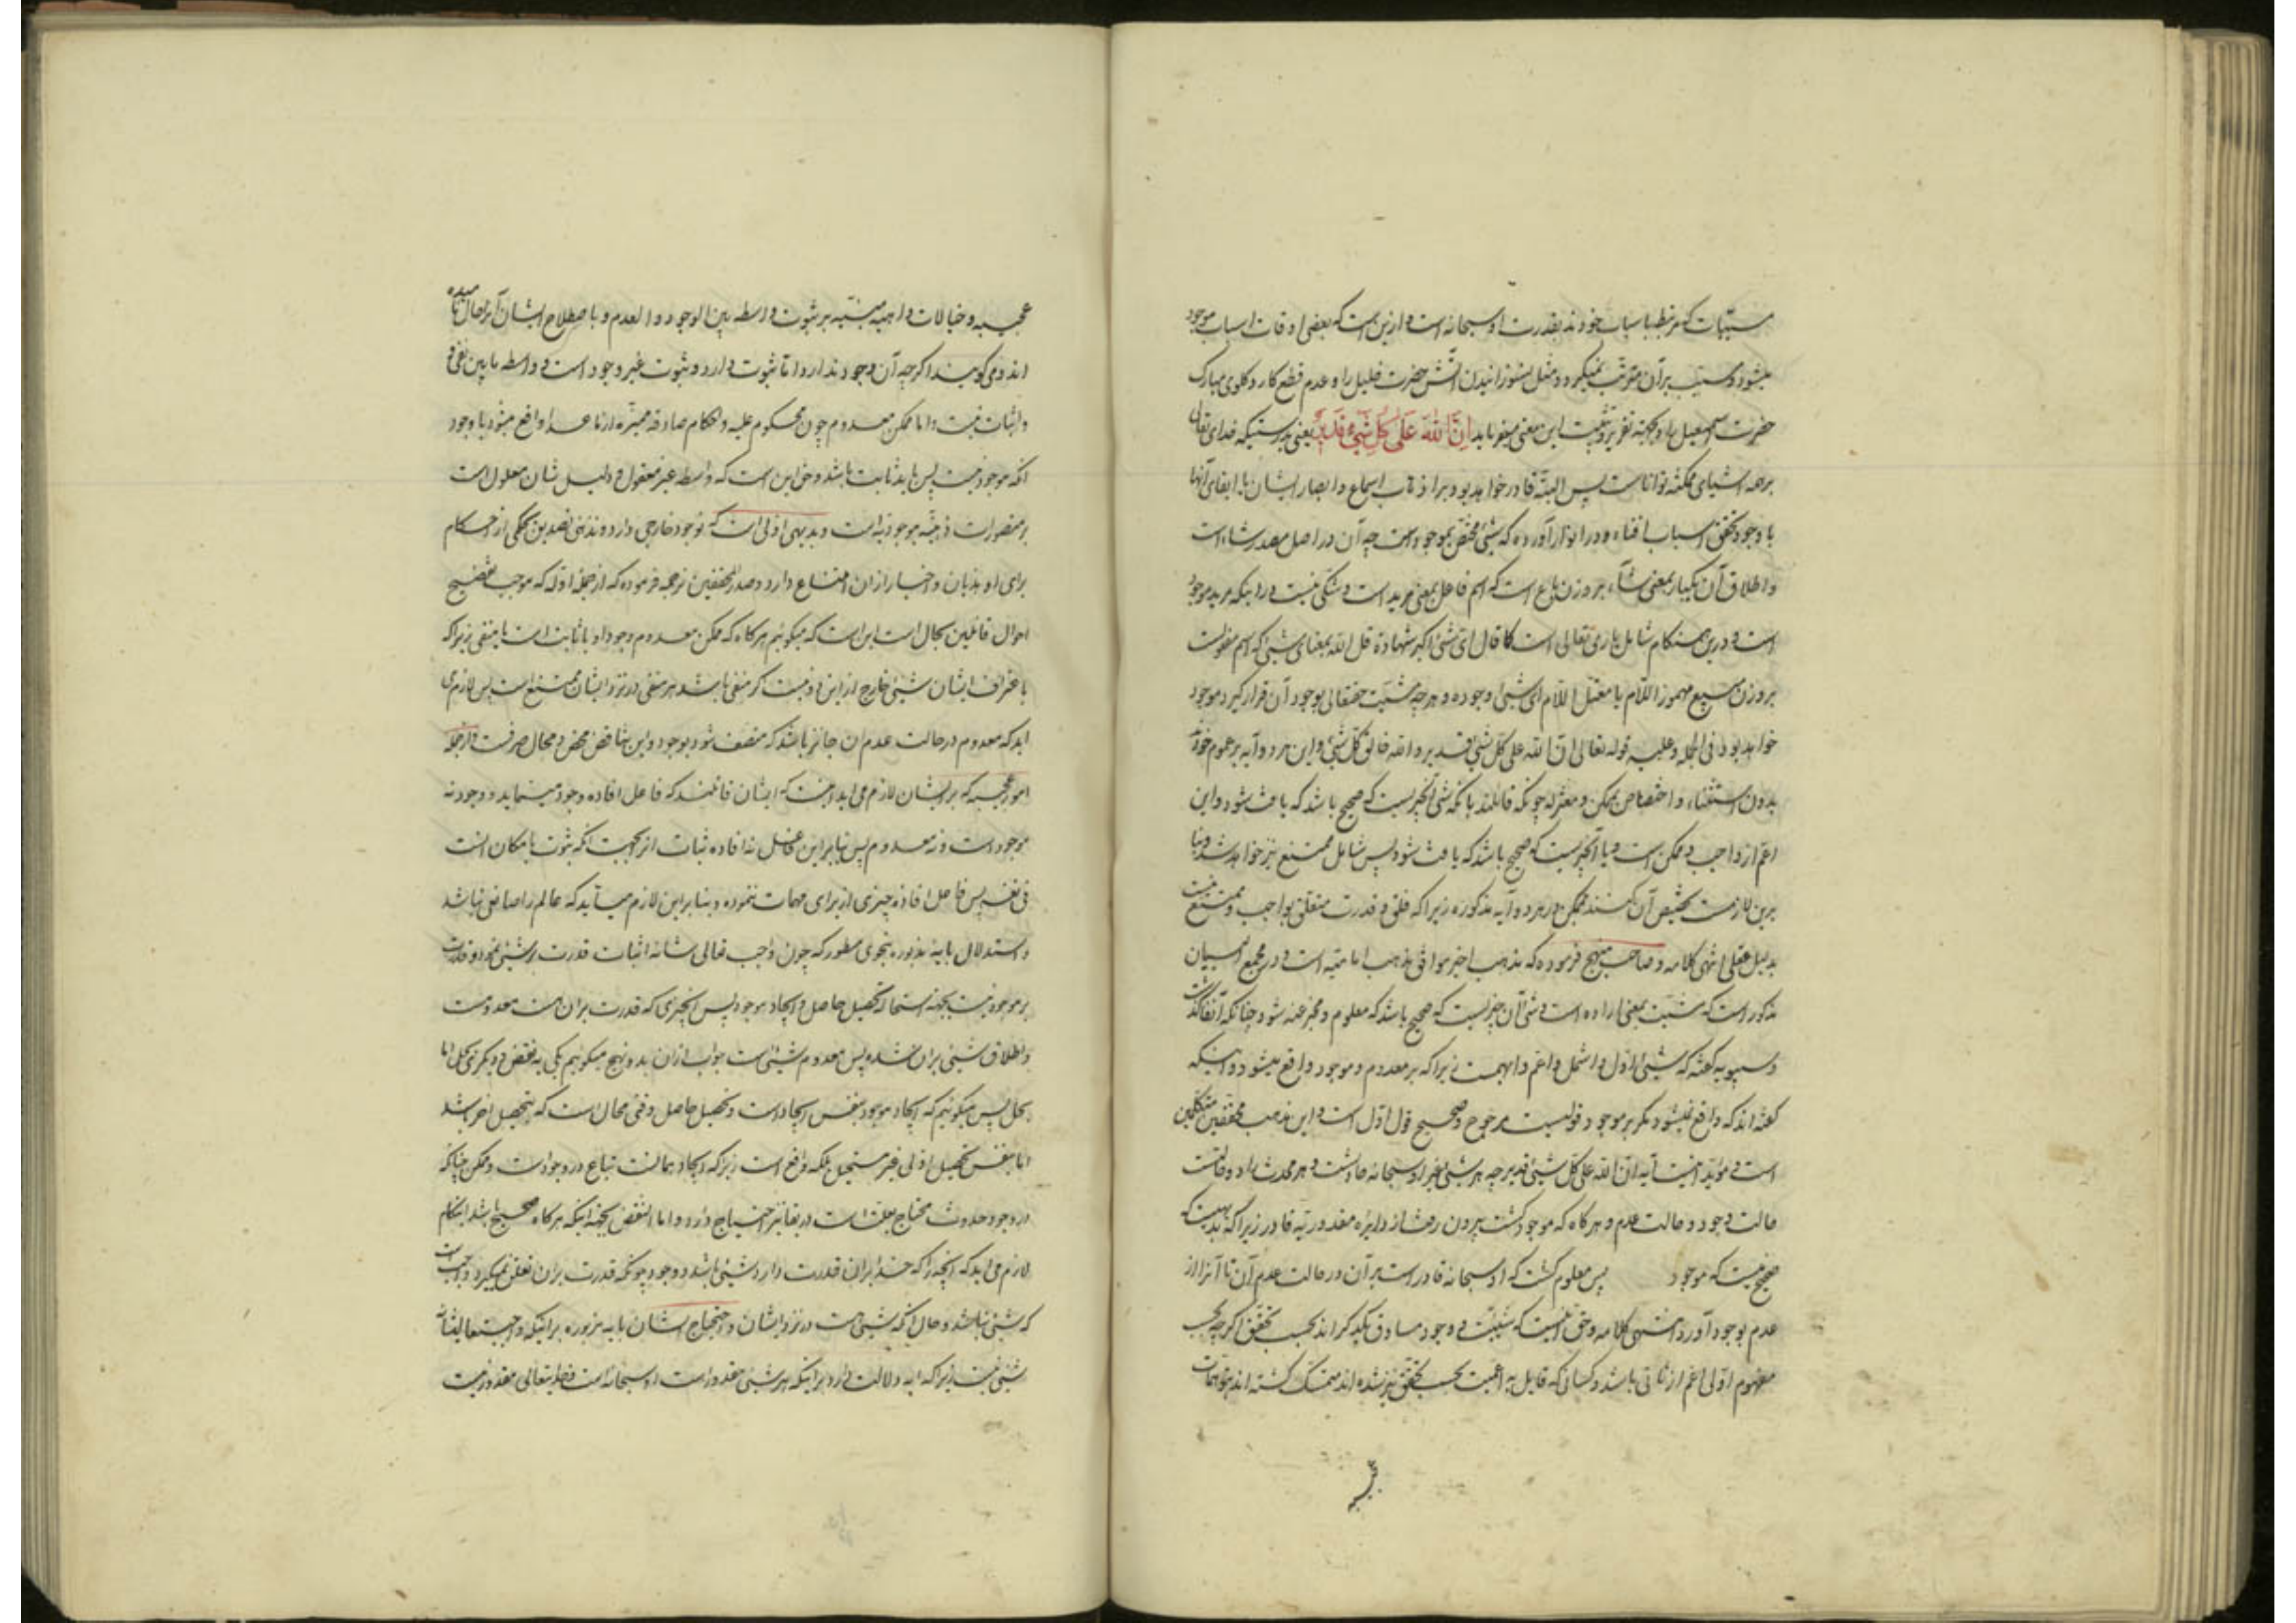 مسببات که مرتبط باسباب خودند بقدرت او سبحانه است و ازین است که بعضی اوقات اسباب موجود
میشود و مسبب بر آن مترتب نمیگردد مثل نسوزانیدن آتش حضرت خلیل را و عدم قطع کارد گلوی مبارک
حضرت اسمعیل را و بجهة تقریر و تثبیت این معنی میفرماید اِنَّ اللّٰهَ عَلٰی کُلِّ شَیْءٍ قَدیرٌ یعنی بدرستیکه خدای تعالی
بر همه اشیای ممکنه تواناست پس البته قادر خواهد بود بر اذهاب اسماع و ابصار ایشان با ابقای آنها
با وجود تحقق اسباب افناء و در انوار آورده که شیء مختص بموجود است چه آن در اصل مصدر شاء است
و اطلاق آن یکبار بمعنی شاء بر وزن است که اسم فاعل بمعنی مرید است و شکی نیست در اینکه مرید موجود
است و درین هنگام شامل باری تعالی است کما قال ای شیء اکبر شهادة قل الله بمعنای مشیء که اسم مفعولست
بر وزن مبیع مهموز اللام یا معتل اللام ای مشیء وجوده و هر چه مشیت حقتعالی بوجود آن قرار گیرد موجود
خواهد بود فی الجمله و علیه قوله تعالی ان الله علی کل شیء قدیر و الله خالق کل شیء و این هر دو آیه بر عموم خود
بدون استثناء و اختصاص بممکن و معتزله چونکه قائلند بانکه شیء آنچیزیست که صحیح باشد که یافت شود و این
اعم از واجب و ممکن است و یا آنچیزیست که صحیح باشد که یافت شود پس شامل ممتنع نیز خواهد شد و بنا
برین لازمست تخصیص آن کنند بممکن در هر دو آیه مذکوره زیرا که خلق و قدرت متعلق بواجب و ممتنع نیست
بدلیل عقلی انتهی کلامه و صاحب منهج فرموده که مذهب اخیر موافق مذهب امامیه است و در مجمع البیان
مذکور است که مشیت بمعنی اراده است و شیء آن چیزیست که صحیح باشد که معلوم و مخبر عنه شود چنانکه آنفا گذشت
و سیبویه گفته که شیء اول و اشمل و اعم و ابهمست زیرا که بر معدوم و موجود واقع میشود و اینکه
گفته اند که واقع نمیشود مگر بر موجود قولیست مرجوح و صحیح قول اول است و این مذهب محققین متکلمین
است و مؤید اینست آیه ان الله علی کل شیء قدیر چه هر شیء غیر او سبحانه حادثست و هر محدث را دو حالتست
حالت وجود و حالت عدم و هر گاه که موجود گشت بیرون رفت از دایره مقدوریة قادر زیرا که بدیهیست که
صحیح نیست که موجود پس معلوم گشت که او سبحانه قادر است بر آن در حالت عدم آن تا آنرا از
عدم بوجود آورد انتهی کلامه و حق اینست که شیئیت و وجود مساوق یکدیگر اند بحسب تحقق اگر چه بحسب
مفهوم اولی اعم از ثانی باشد و کسانی که قایل به اعمیت بحسب تحقق نیز شده اند متمسک گشته اند بتوهمات
عجیبه
عجیبه و خیالات واهیه مبنیه بر ثبوت واسطه بین الوجود و العدم و باصطلاح ایشان آنرا حال نامیده
اند و می گویند اگر چه آن وجود ندارد اما ثبوت دارد و ثبوت غیر وجود است و واسطه مابین نفی
و اثبات نیست و اما ممکن معدوم چون محکوم علیه و احکام صادقه ممیزه از ما عدا واقع میشود با وجود
آنکه موجود نیست پس باید ثابت باشد و حق این است که واسطه غیر معقول و دلیل شان معلول است
بر متصورات ذهنیه موجود نیه است و بدیهی اولی است که نه وجود خارجی دارد و نه ذهنی تصدیق بحکمی از احکام
برای او بذیان و اخبار از ان امتناع دارد و صدر المحققین ترجمه فرموده که از جمله ادله که موجب تفضیح
احوال قائلین بحال است این است که میگوئیم هر گاه که ممکن معدوم وجود او یا ثابت است یا منفی زیرا که
باعتراف ایشان شیء خارج از این دو نیست گر منفی باشد هر منفی در نزد ایشان ممتنع است پس لازم می
آید که معدوم در حالت عدم ان جائز باشد که متصف شود بوجود و این تناقض محض و محال صرفست و از جمله
امور عجیبه که بر ایشان لازم می آید اینست که ایشان قائلند که فاعل افاده وجود مینماید و وجود نه
موجود است و نه معدوم پس بنابراین فاعل نه افاده ثبات اثر بجهت آنکه ثبوت بامکان است
فی نفسه پس فاعل افاده چیزی از برای مهیات ننموده و بنابراین لازم میآید که عالم را صانعی نباشد
و استدلال بآیه مذبوره بنحوی مسطور که چون واجب تعالی شانه اثبات قدرت بر شیئی نموده و قدرت
بر موجود نیست بجهة استحاله تحصیل حاصل و ایجاد موجود پس آنچیزی که قدرت بر ان است معدومست
و اطلاق شیئی بر ان شده پس معدوم شیئی است جواب از ان بدو نهج میگوئیم یکی به نقض و دیگری بحل اما
بحل پس میگوئیم که ایجاد موجود بنفس ایجاد است و تحصیل حاصل وقتی محال است که بتحصیل اخر باشد
اما بنفس تحصیل اولی غیر مستحیل بلکه واقع است زیرا که ایجاد همانست تباع در وجود است و ممکن چنانکه
در وجود حدوث محتاج بعلت است در بقا نیز احتیاج دارد و اما النقض بجهة اینکه هر گاه صحیح باشد این کلام
لازم می آید که آنچه را که خدا بر ان قدرت دارد شیئی باشد و وجود چونکه قدرت بر ان تعلق نمیگیرد واجب است
که شیئی نباشد و حال آنکه شیئی است در نزد ایشان و احتجاج ایشان بآیه مزبوره بر اینکه واجب تعالی شانه
شیئی نیست زیرا که آیه دلالت دارد بر اینکه هر شیئی مقدور است او سبحانه است تعالی مقدور نیست